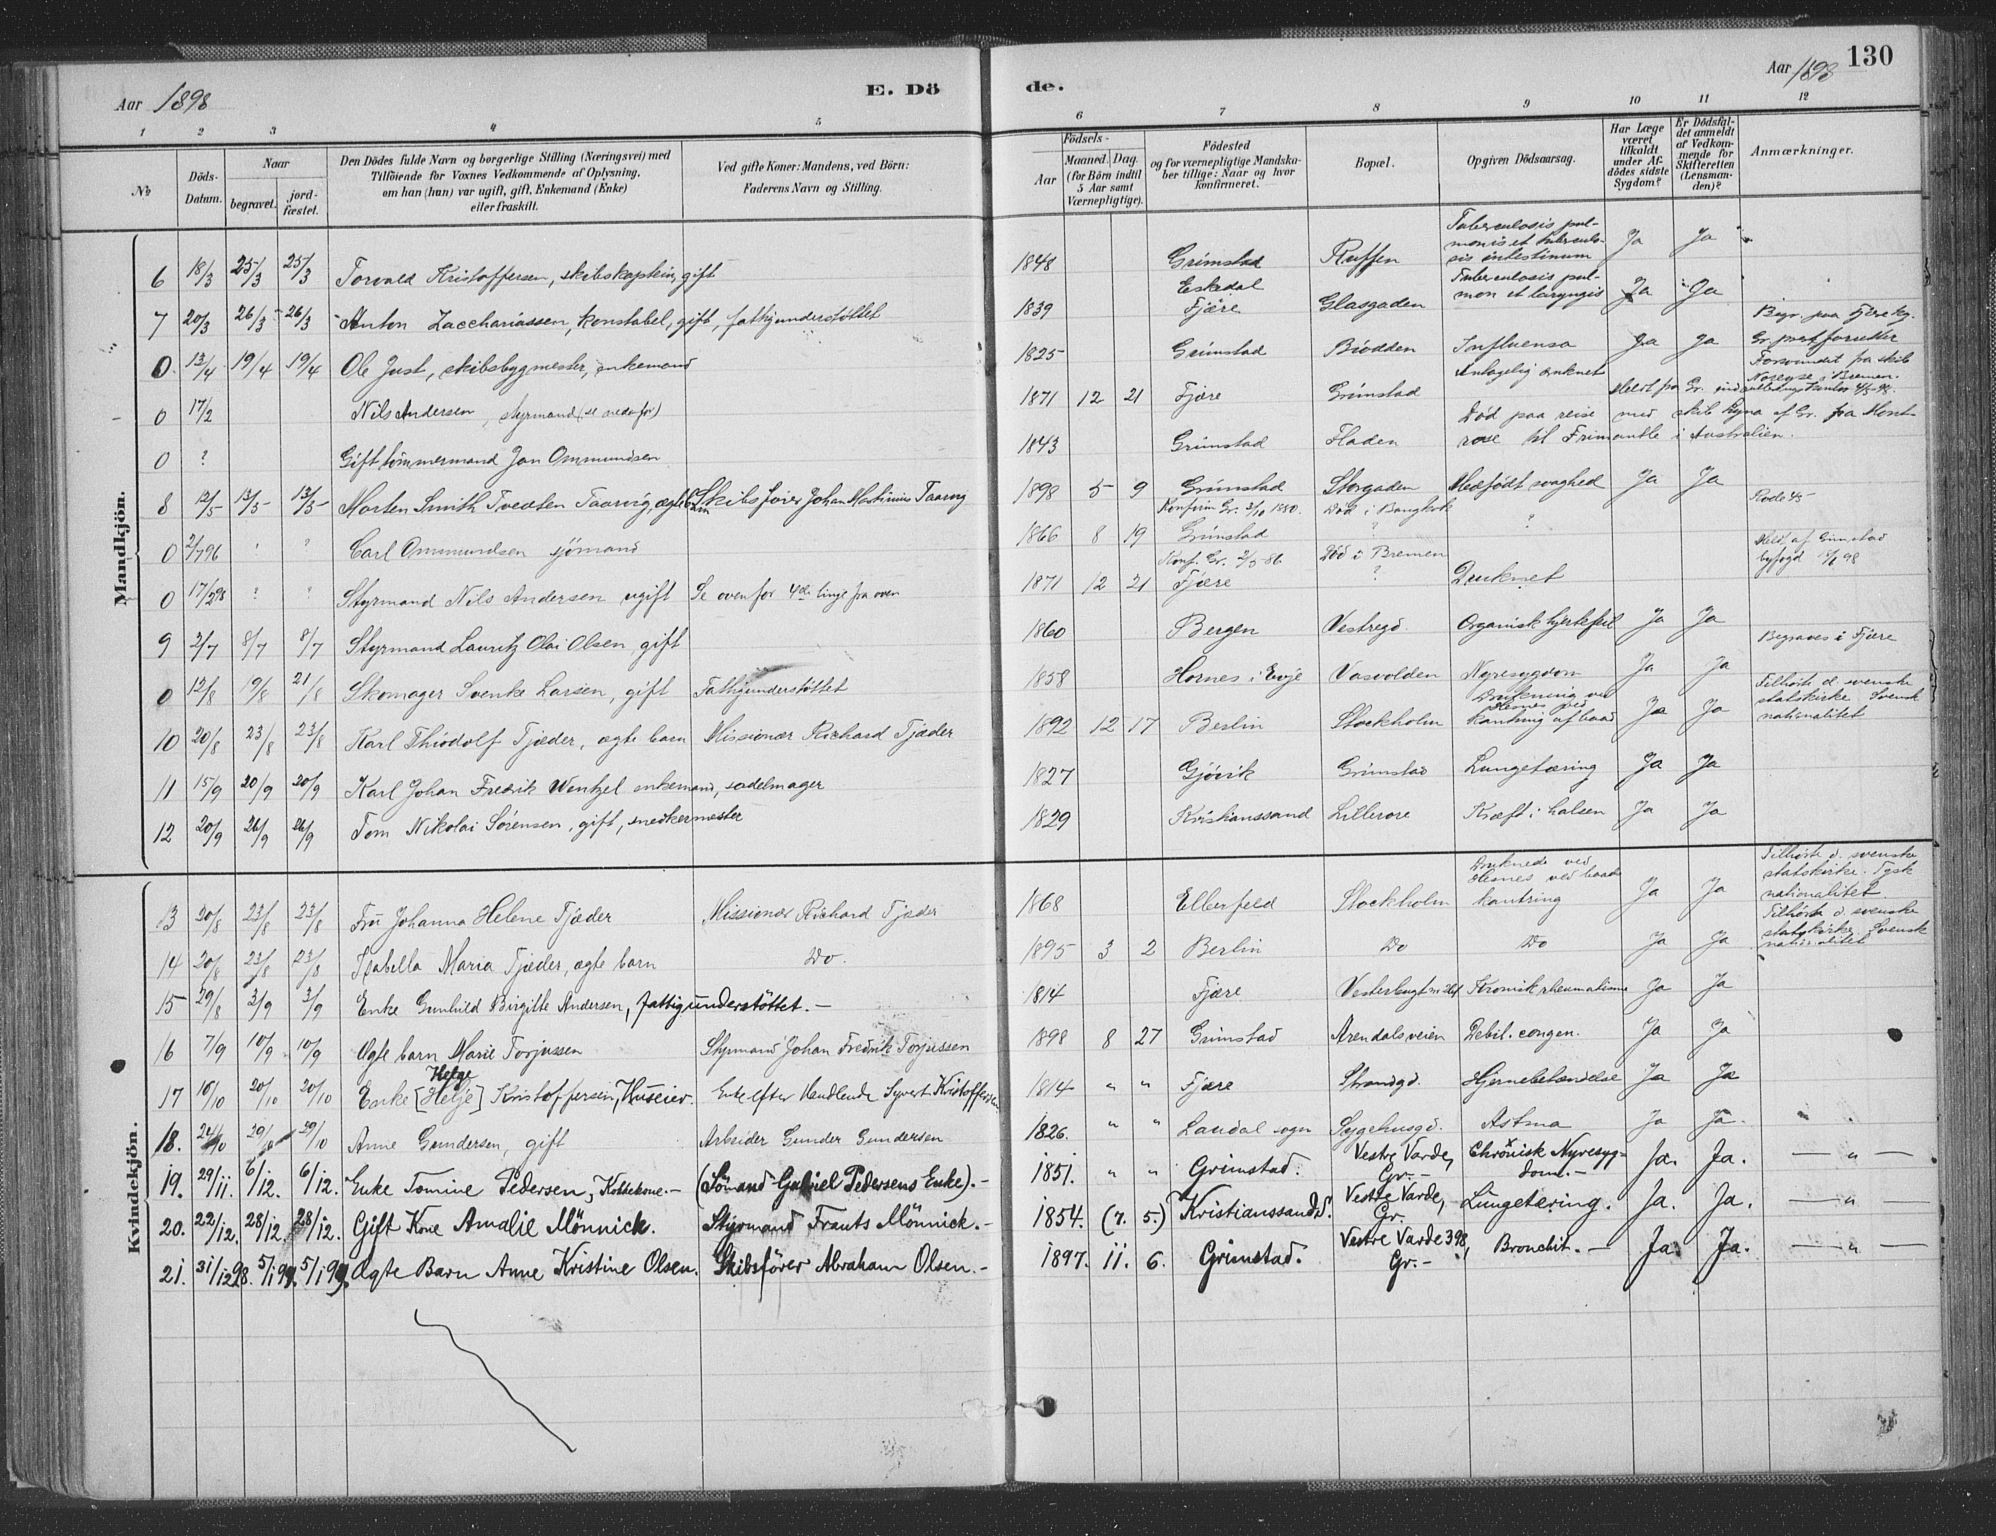 Aar 1898
E. Dö
de.
Aar 1898
130
1 2 3 4 5 6 7 8 9 10 11 12
No
Döds-Datum.
Naar
begravet.
jordfæstet.
Den Dödes fulde Navn og borgerlige Stilling (Næringsvei) med
Tilföiende for Voxnes Vedkommende af Oplysning,
om han (hun) var ugift, gift, Enkemand (Enke)
eller fraskilt.
Ved gifte Koner: Mandens, ved Börn:
Faderens Navn og Stilling.
Födsels-
Aar
Maaned. Dag.
(for Börn indtil
5 Aar samt
Værnepligtige).
Födested
og for værnepligtige Mandskaber tillige: Naar og hvor
konfirmeret.
Bopæl.
Opgiven Dödsaarsag.
Har Læge
været
tilkaldt
under Afdödes sidste
Sygdom?
Er Dödsfaldet anmeldt
af Vedkommende for
Skifteretten
(Lensmanden)?
Anmærkninger.
Mandkjön.
6 18/3 25/3 25/3 Torvald Kristoffersen, skibskaptein, gift 1848 Grimstad Ruffen Tuberculosis pulmonis et tuberculosis intestinum Ja Ja
7 20/3 26/3 26/3 Anton Zacchariassen, konstabel, gift, fattigunderstöttet 1839 Eskedal Fjære Glasgaden Tuberculosis pulmon et laryngis Ja Ja Begr. paa Fjære kg.
0 13/4 19/4 19/4 Ole Just, skibsbygmester, enkemand 1825 Grimstad Biodden Influensa Ja Ja
0 17/2 Nils Andersen, styrmand (se nedenfor) 1871 12 21 Fjære Grimstad Antagelig druknet Forsvundet fra skib i Bremen.
0 ? Gift tömmermand Jan Ommundsen 1843 Grimstad Haden Död paa reise med skib af Gr. fra Montrose til Frimantle i Australien.
8 12/5 13/5 13/5 Morten Smith Tvedten Taarvig, ægte barn Skibsförer Johan Martinius Taarvig 1898 5 9 Grimstad Storgaden Medfödt svaghed Ja Ja
0 2/7 96 ? ? Carl Ommundsen sjömand 1866 8 19 Konfirm Gr. 3/10 1880. Grimstad Död i Bangkok ? ?
0 17/2 98 ? ? Styrmand Nils Andersen ugift Se ovenfor 4de linje fra oven 1871 12 21 Konf. Gr. 2/5-86 Fjære Död i Bremen ? Druknet Meld. af Grimstad byfogd 98
9 2/7 8/7 8/7 Styrmand Lauritz Olai Olsen, gift 1860 Bergen Vestregd. Organisk hjertefeil Ja Ja
0 12/8 19/8 21/8 Skomager Svenke Larsen, gift Fattigunderstöttet 1858 Hornes i Evje Vasvolden Nyresygdom Ja Ja Begraves i Fjære
10 20/8 23/8 23/8 Karl Thiodolf Tjæder, ægte barn Missionær Richard Tjæder 1892 12 17 Berlin Stockholm Drukning ved Hesnes ved kantring af baad Ja Ja Tilhörte d. svenske statskirke Svensk nationalitet
11 15/9 20/9 20/9 Karl Johan Fredrik Wentzel enkemand, sadelmager 1827 Gjövik Grimstad Lungetæring Ja Ja
12 20/9 26/9 26/9 Tom Nikolai Sörensen, gift, snedkermester 1829 Kristianssand Lillerore Kræft i halsen Ja Ja
Kvindekjön.
13 20/8 23/8 23/8 Fru Johanna Helene Tjæder Missionær Richard Tjæder 1868 Elberfeld Stockholm Druknede ved Hesnes ved baadkantring Ja Ja Tilhörte d. svenske statskirke. Tysk nationalitet
14 20/8 23/8 23/8 Isabella Maria Tjæder, ægte barn Do. 1895 3 2 Berlin Do Do Ja Ja Tilhörte d. svenske statskirke. Svensk nationalitet
15 29/8 3/9 3/9 Enke Gunhild Birgitte Andersen, fattigunderstöttet.- 1814 Fjære Kronisk rheumatisme Ja Ja
16 7/9 10/9 10/9 Ægte barn Marie Torjussen Styrmand Johan Fredrik Torjussen 1898 8 27 Grimstad Arendalsveien Debil. congen. Ja Ja
17 10/10 20/10 20/10 Enke [Helje] Helge Kristoffersen, Huseier. Enke efter Handlende Syvert Kristoffersen 1814 " " Fjære Strandgd. Hjernebetændelse Ja Ja
18. 24/10 29/10 29/10 Anne Gundersen, gift Arbeider Gunder Gundersen 1826. " " Laudal sogn Sygehusgd. Astma Ja Ja.
19. 29/11. 6/12. 6/12. Enke Tomine Pedersen, Kokkekone.- (Sömand Gabriel Pedersens Enke).- 1851. " " Grimstad. Vestre Varde, Gr.- Chronisk Nyresygdom.- Ja. Ja. — " —
20. 22/12. 28/12. 28/12. Gift Kone Amalie Mönnick. Styrmand Frants Mönnick.- 1854. (7. 5.) Kristianssand. Vestre Varde, Gr. Lungetæring. Ja. Ja. — "
21. 31/12 98. 5/1 99. 5/1 99. Ægte Barn Anne Kristine Olsen. Skibsförer Abraham Olsen.- 1897. 11. 6. Grimstad. Vestre Varde 398, Gr.- Bronchit.- Ja. Ja. — " —